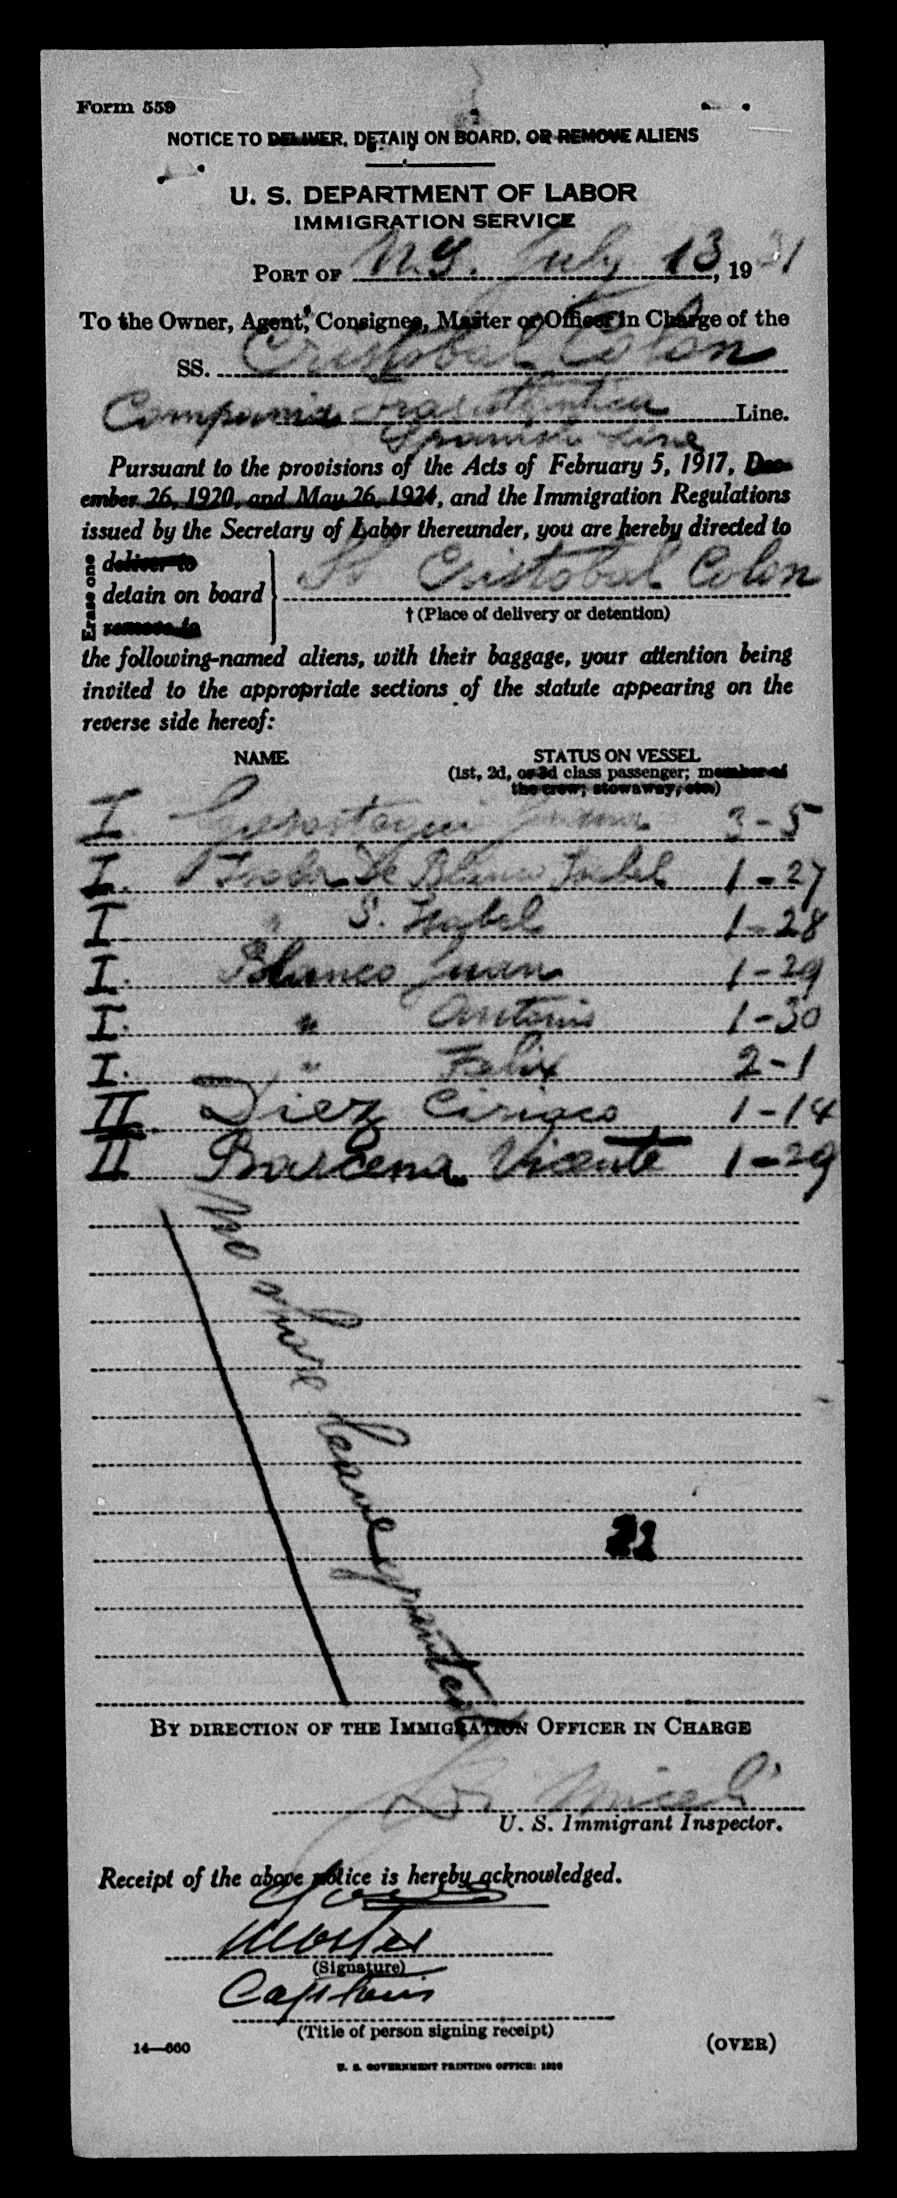 Form 559
NOTICE TO DELIVER, DETAIN ON BOARD, OR REMOVE ALIENS
U. S. DEPARTMENT OF LABOR
IMMIGRATION SERVICE
PORT OF N.Y. July 13, 1931
To the Owner, Agent, Consignee, Master or Officer in Charge of the
SS. Cristobal Colon
Line.
Spanish Line
Pursuant to the provisions of the Acts of February 5, 1917, Dec-
ember 26, 1920, and May 26, 1924, and the Immigration Regulations
issued by the Secretary of Labor thereunder, you are hereby directed to
Erase one
deliver to
detain on board
remove to
SS Cristobal Colon
† (Place of delivery or detention)
the following-named aliens, with their baggage, your attention being
invited to the appropriate sections of the statute appearing on the
reverse side hereof:
NAME STATUS ON VESSEL
(1st, 2d, or 3d class passenger; member of
the crew; stowaway, etc.)
I 3-5
I. De Blanco Isabel 1-27
I " S. Isabel 1-28
I. Blanco Juan 1-29
I. " Antonio 1-30
I. " Felix 2-1
II. Diez Ciriaco 1-14
II Barcena Vicente 1-29
No shore leave granted
22
BY DIRECTION OF THE IMMIGRATION OFFICER IN CHARGE
U. S. Immigrant Inspector.
Receipt of the above notice is hereby acknowledged.
Master
(Signature)
Captain
(Title of person signing receipt)
14—660
(OVER)
U. S. GOVERNMENT PRINTING OFFICE: